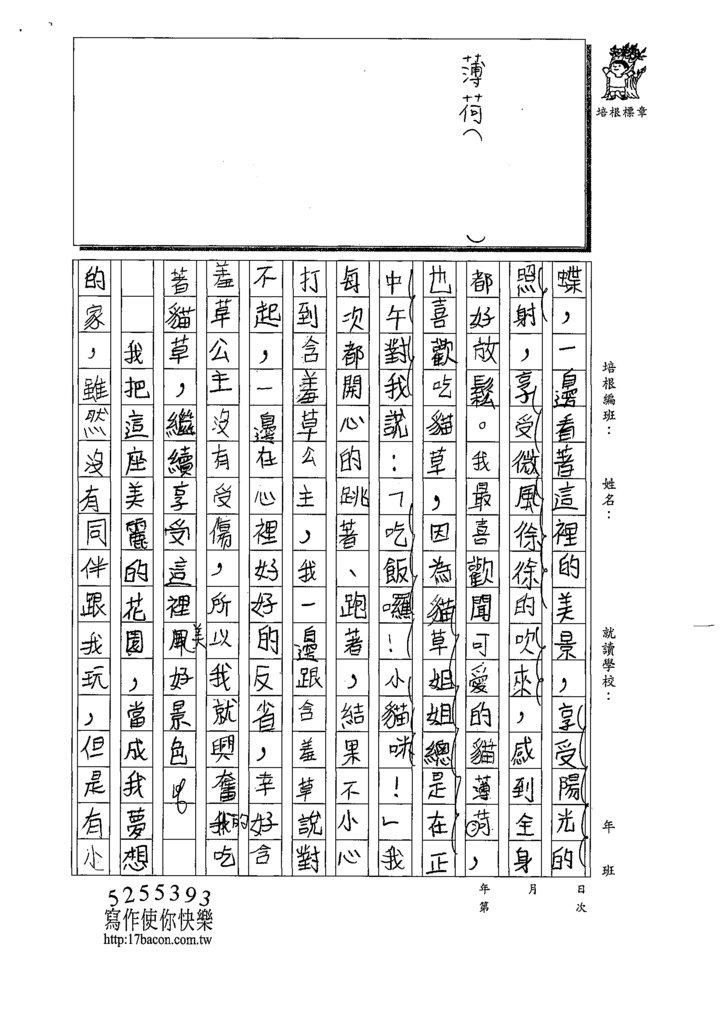 培根標章
薄荷(　)
培根編班：　姓名：　就讀學校：　年　班
年　月　日
第　次
蝶，一邊看著這裡的美景，享受陽光的
照射，享受微風徐徐的吹來，感到全身
都好放鬆。我最喜歡聞可愛的貓薄荷，
也喜歡吃貓草，因為貓草姐姐總是在正
中午對我說：「吃飯囉！小貓咪！」我
每次都開心的跳著、跑著，結果不小心
打到含羞草公主，我一邊跟含羞草說對
不起，一邊在心裡好好的反省，幸好含
羞草公主沒有受傷，所以我就興奮的吃
著貓草，繼續享受這裡美好景色。
我把這座美麗的花園，當成我夢想
的家，雖然沒有同伴跟我玩，但是有小
5255393
寫作使你快樂
http:17bacon.com.tw